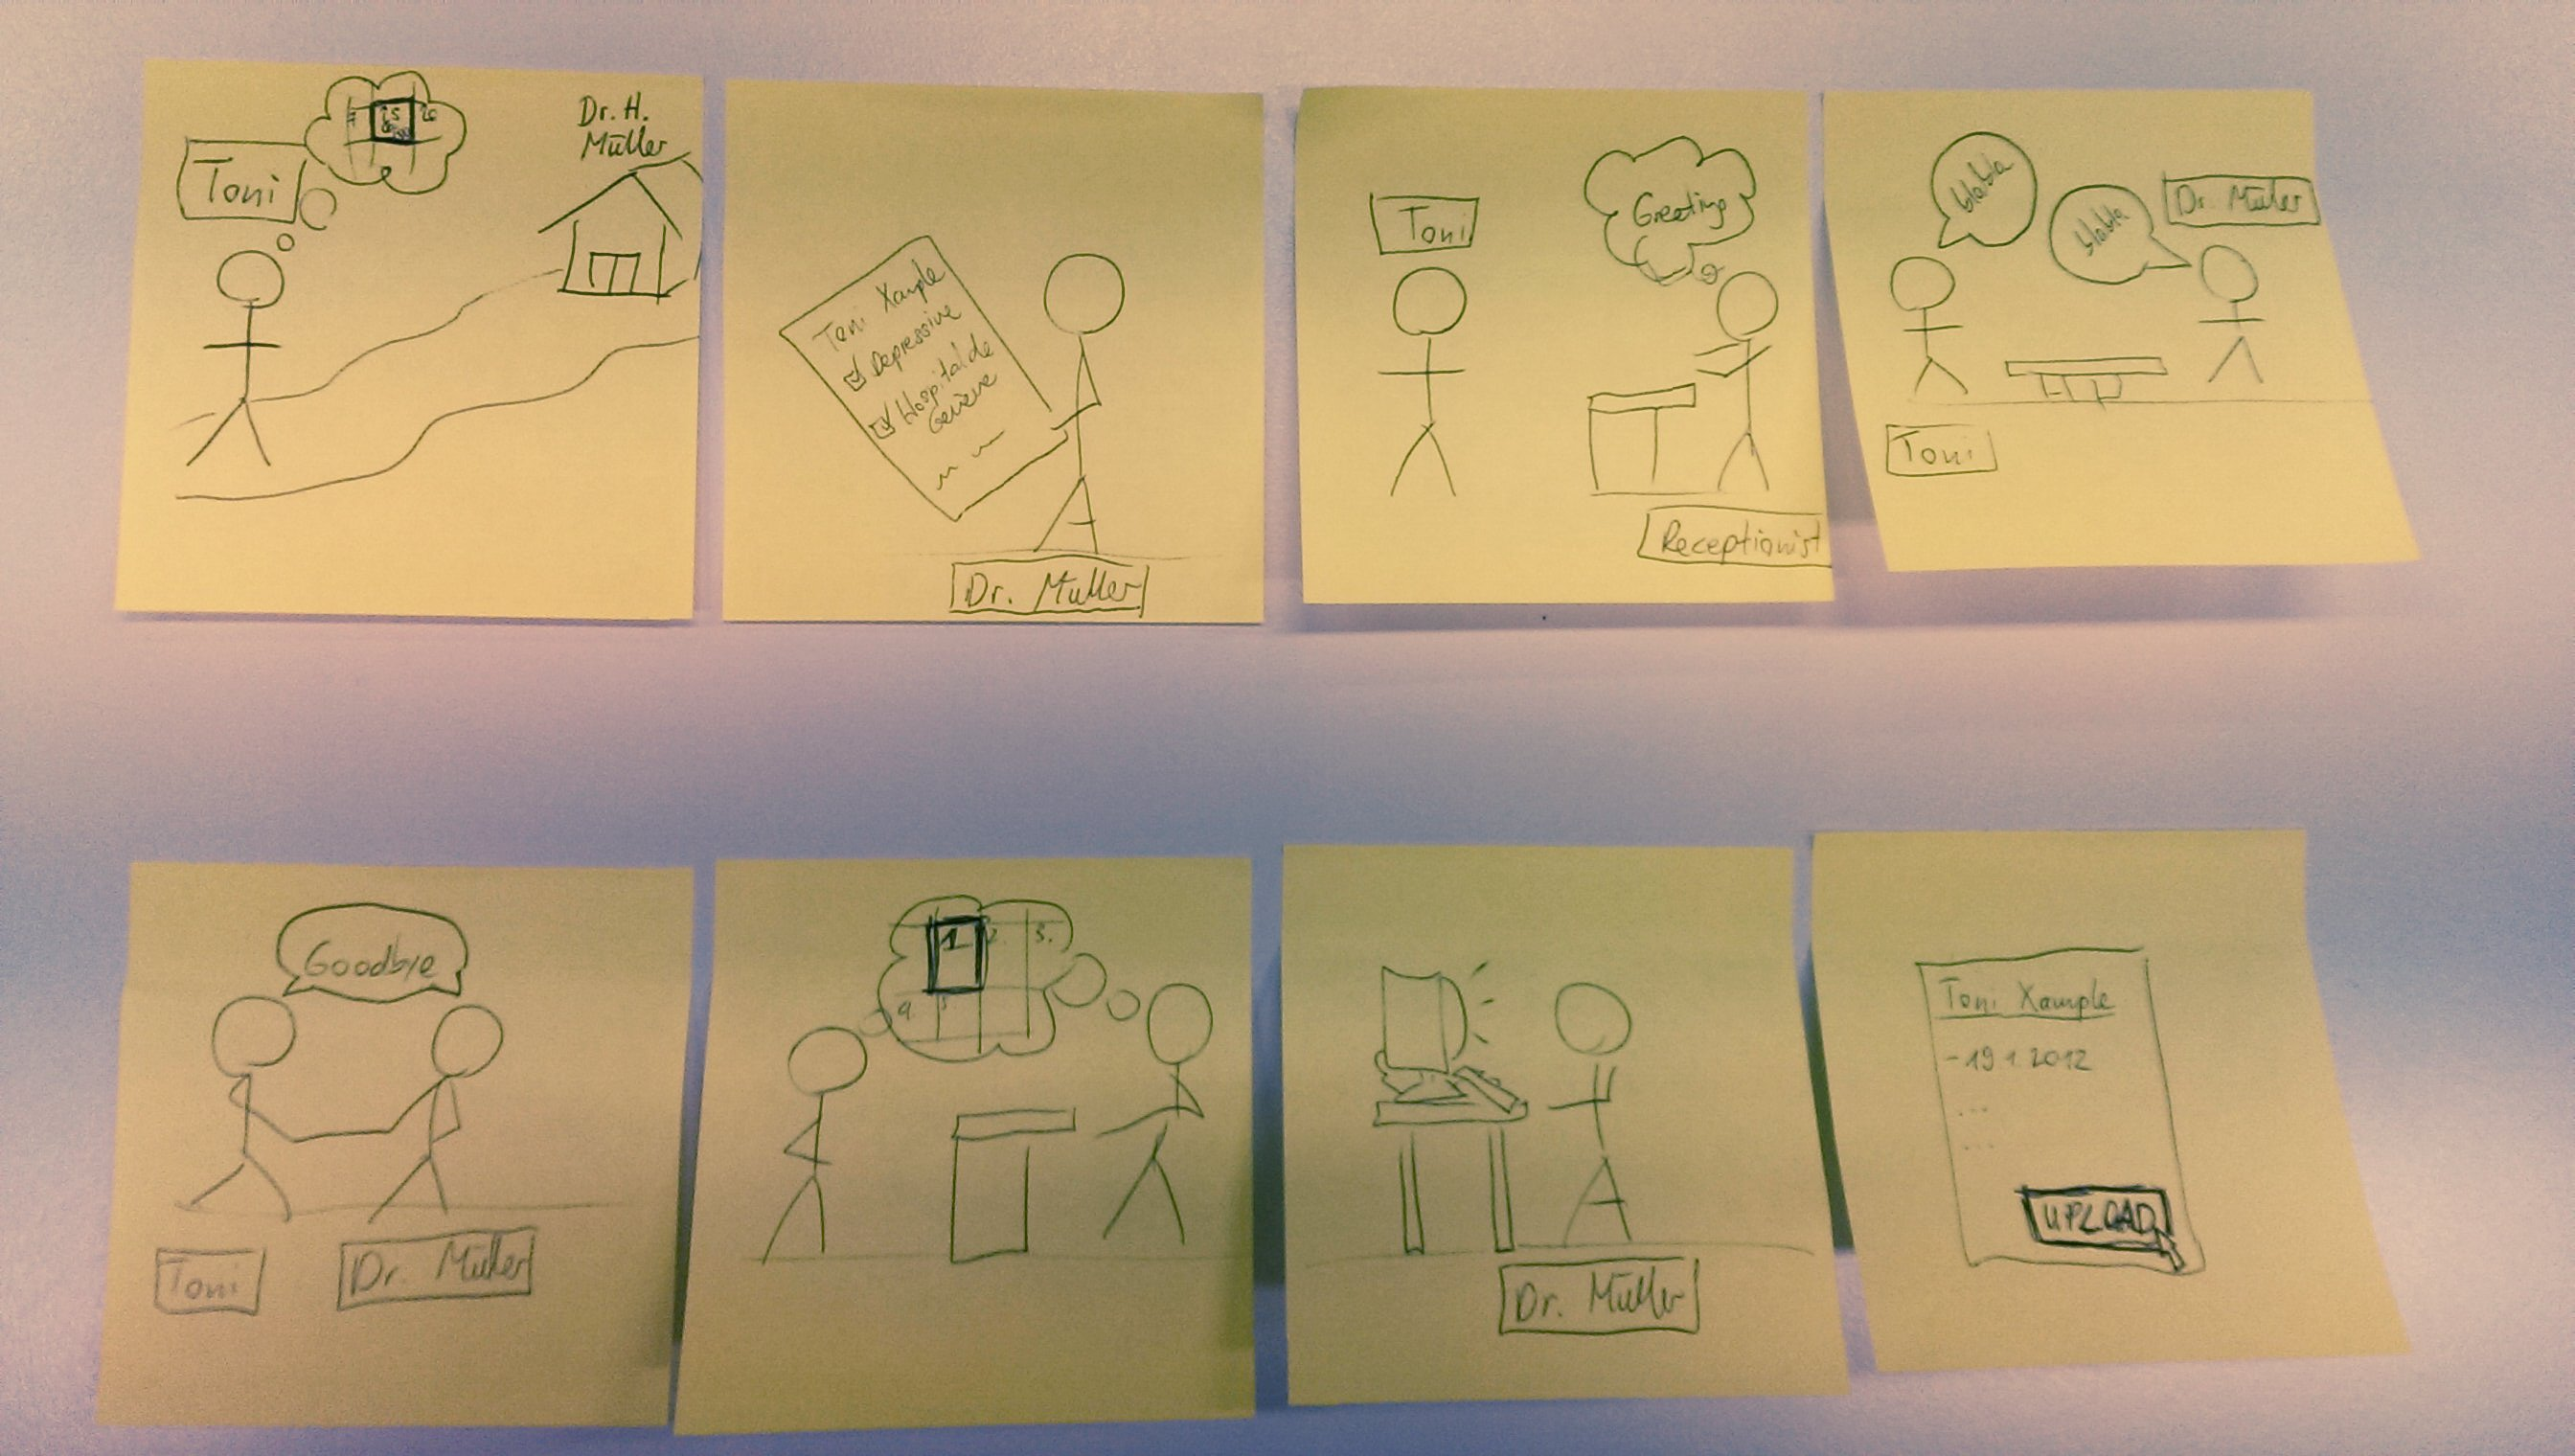 Toni
Dr. H.
Müller
Toni Xample
Depressive
Hospital de
Genève
Dr. Müller
Toni
Greetings
Receptionist
blabla
blabla
Dr. Müller
Toni
Goodbye
Toni
Dr. Müller
1 2. 3.
Dr. Müller
Toni Xample
- 19.1.2012
...
...
UPLOAD